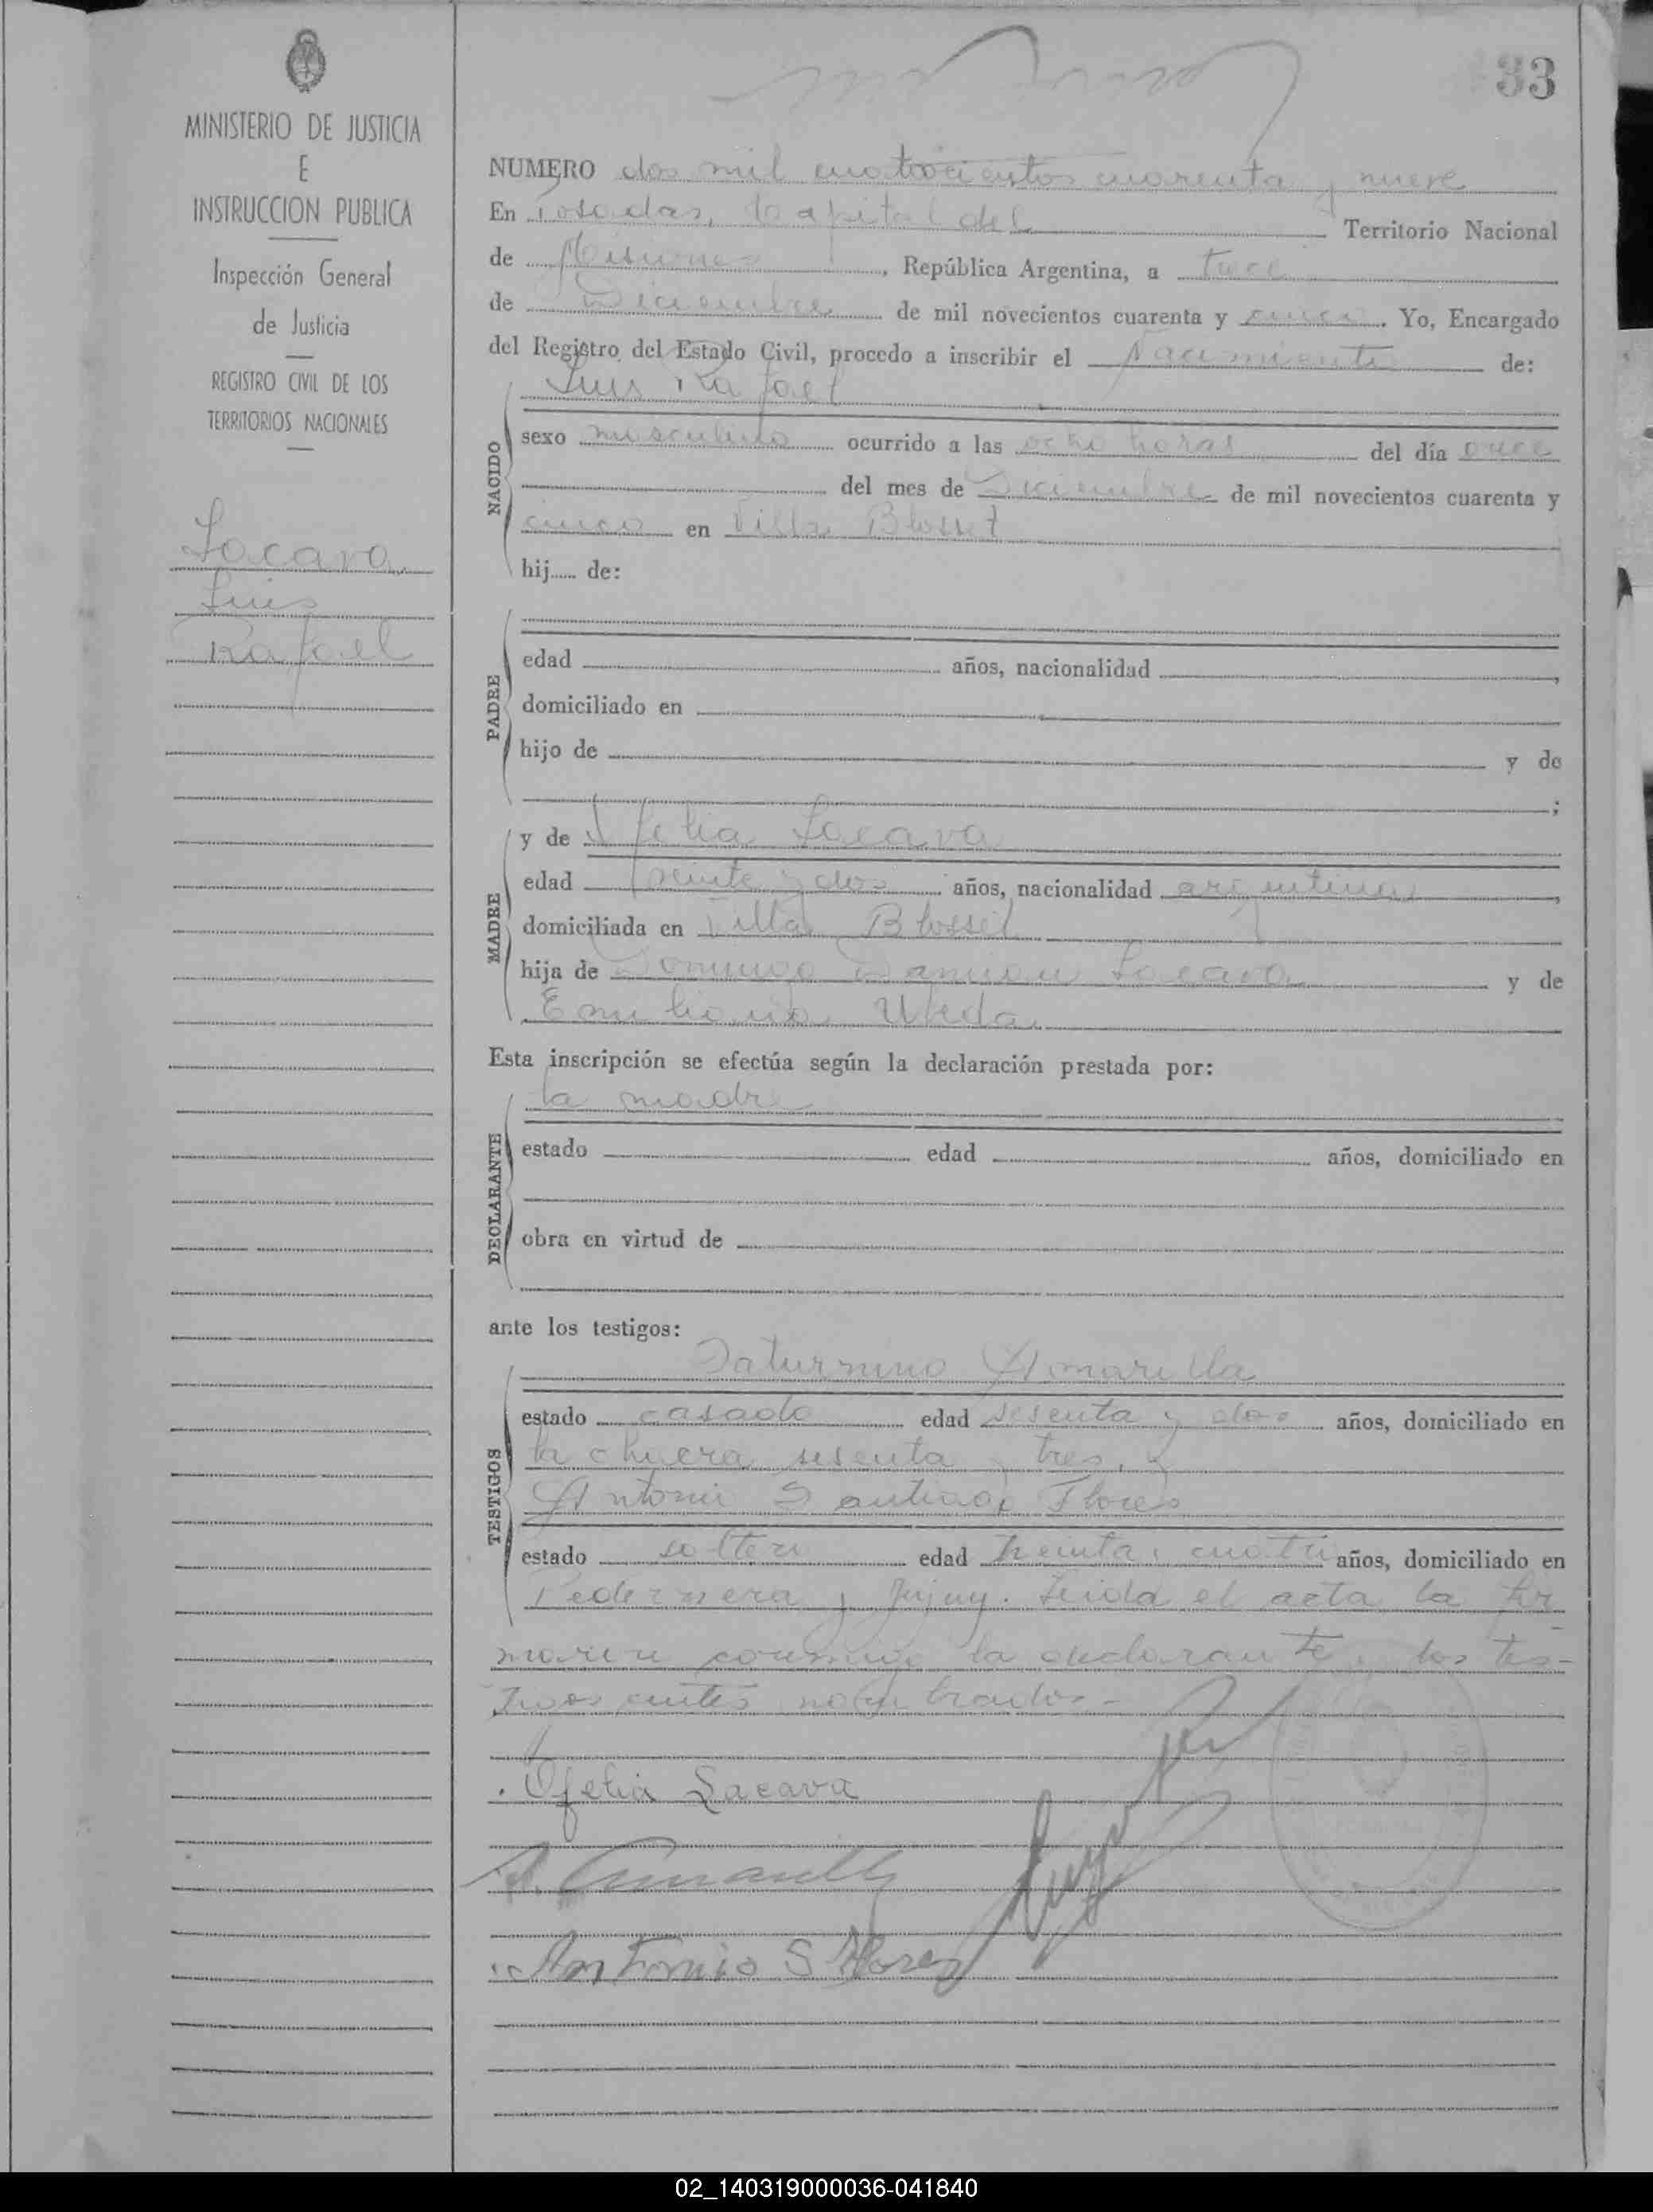 33
MINISTERIO DE JUSTICIA
E
INSTRUCCION PUBLICA
Inspección General
de Justicia
REGISTRO CIVIL DE LOS
TERRITORIOS NACIONALES
Lacava
Luis
Rafael
NUMERO dos mil cuatrocientos cuarenta y nueve
En Posadas, Capital del Territorio Nacional
de Misiones, República Argentina, a trece
de Diciembre de mil novecientos cuarenta y cinco. Yo, Encargado
del Registro del Estado Civil, procedo a inscribir el Nacimiento de:
Luis Rafael
NACIDO
sexo masculino ocurrido a las ocho horas del día once
del mes de Diciembre de mil novecientos cuarenta y
cinco en Villa Blosset
hij...... de:
PADRE
edad años, nacionalidad ,
domiciliado en
hijo de y de
;
MADRE
y de Ofelia Lacava
edad veinte y dos años, nacionalidad argentina,
domiciliada en Villa Blosset
hija de Domingo Damian Lacava y de
Emiliana Ubeda
Esta inscripción se efectúa según la declaración prestada por:
la madre
DECLARANTE
estado edad años, domiciliado en
obra en virtud de
ante los testigos:
TESTIGOS
Saturnino Amarilla
estado casado edad sesenta y dos años, domiciliado en
la chacra sesenta y tres, y
Antonio Santiago Flores
estado soltero edad treinta y cuatro años, domiciliado en
Pedernera y Jujuy. Leida el acta la fir
maron conmigo la declarante y los tes-
tigos antes nombrados.-
Ofelia Lacava
S. Amarilla
Antonio S Flores
02_140319000036-041840